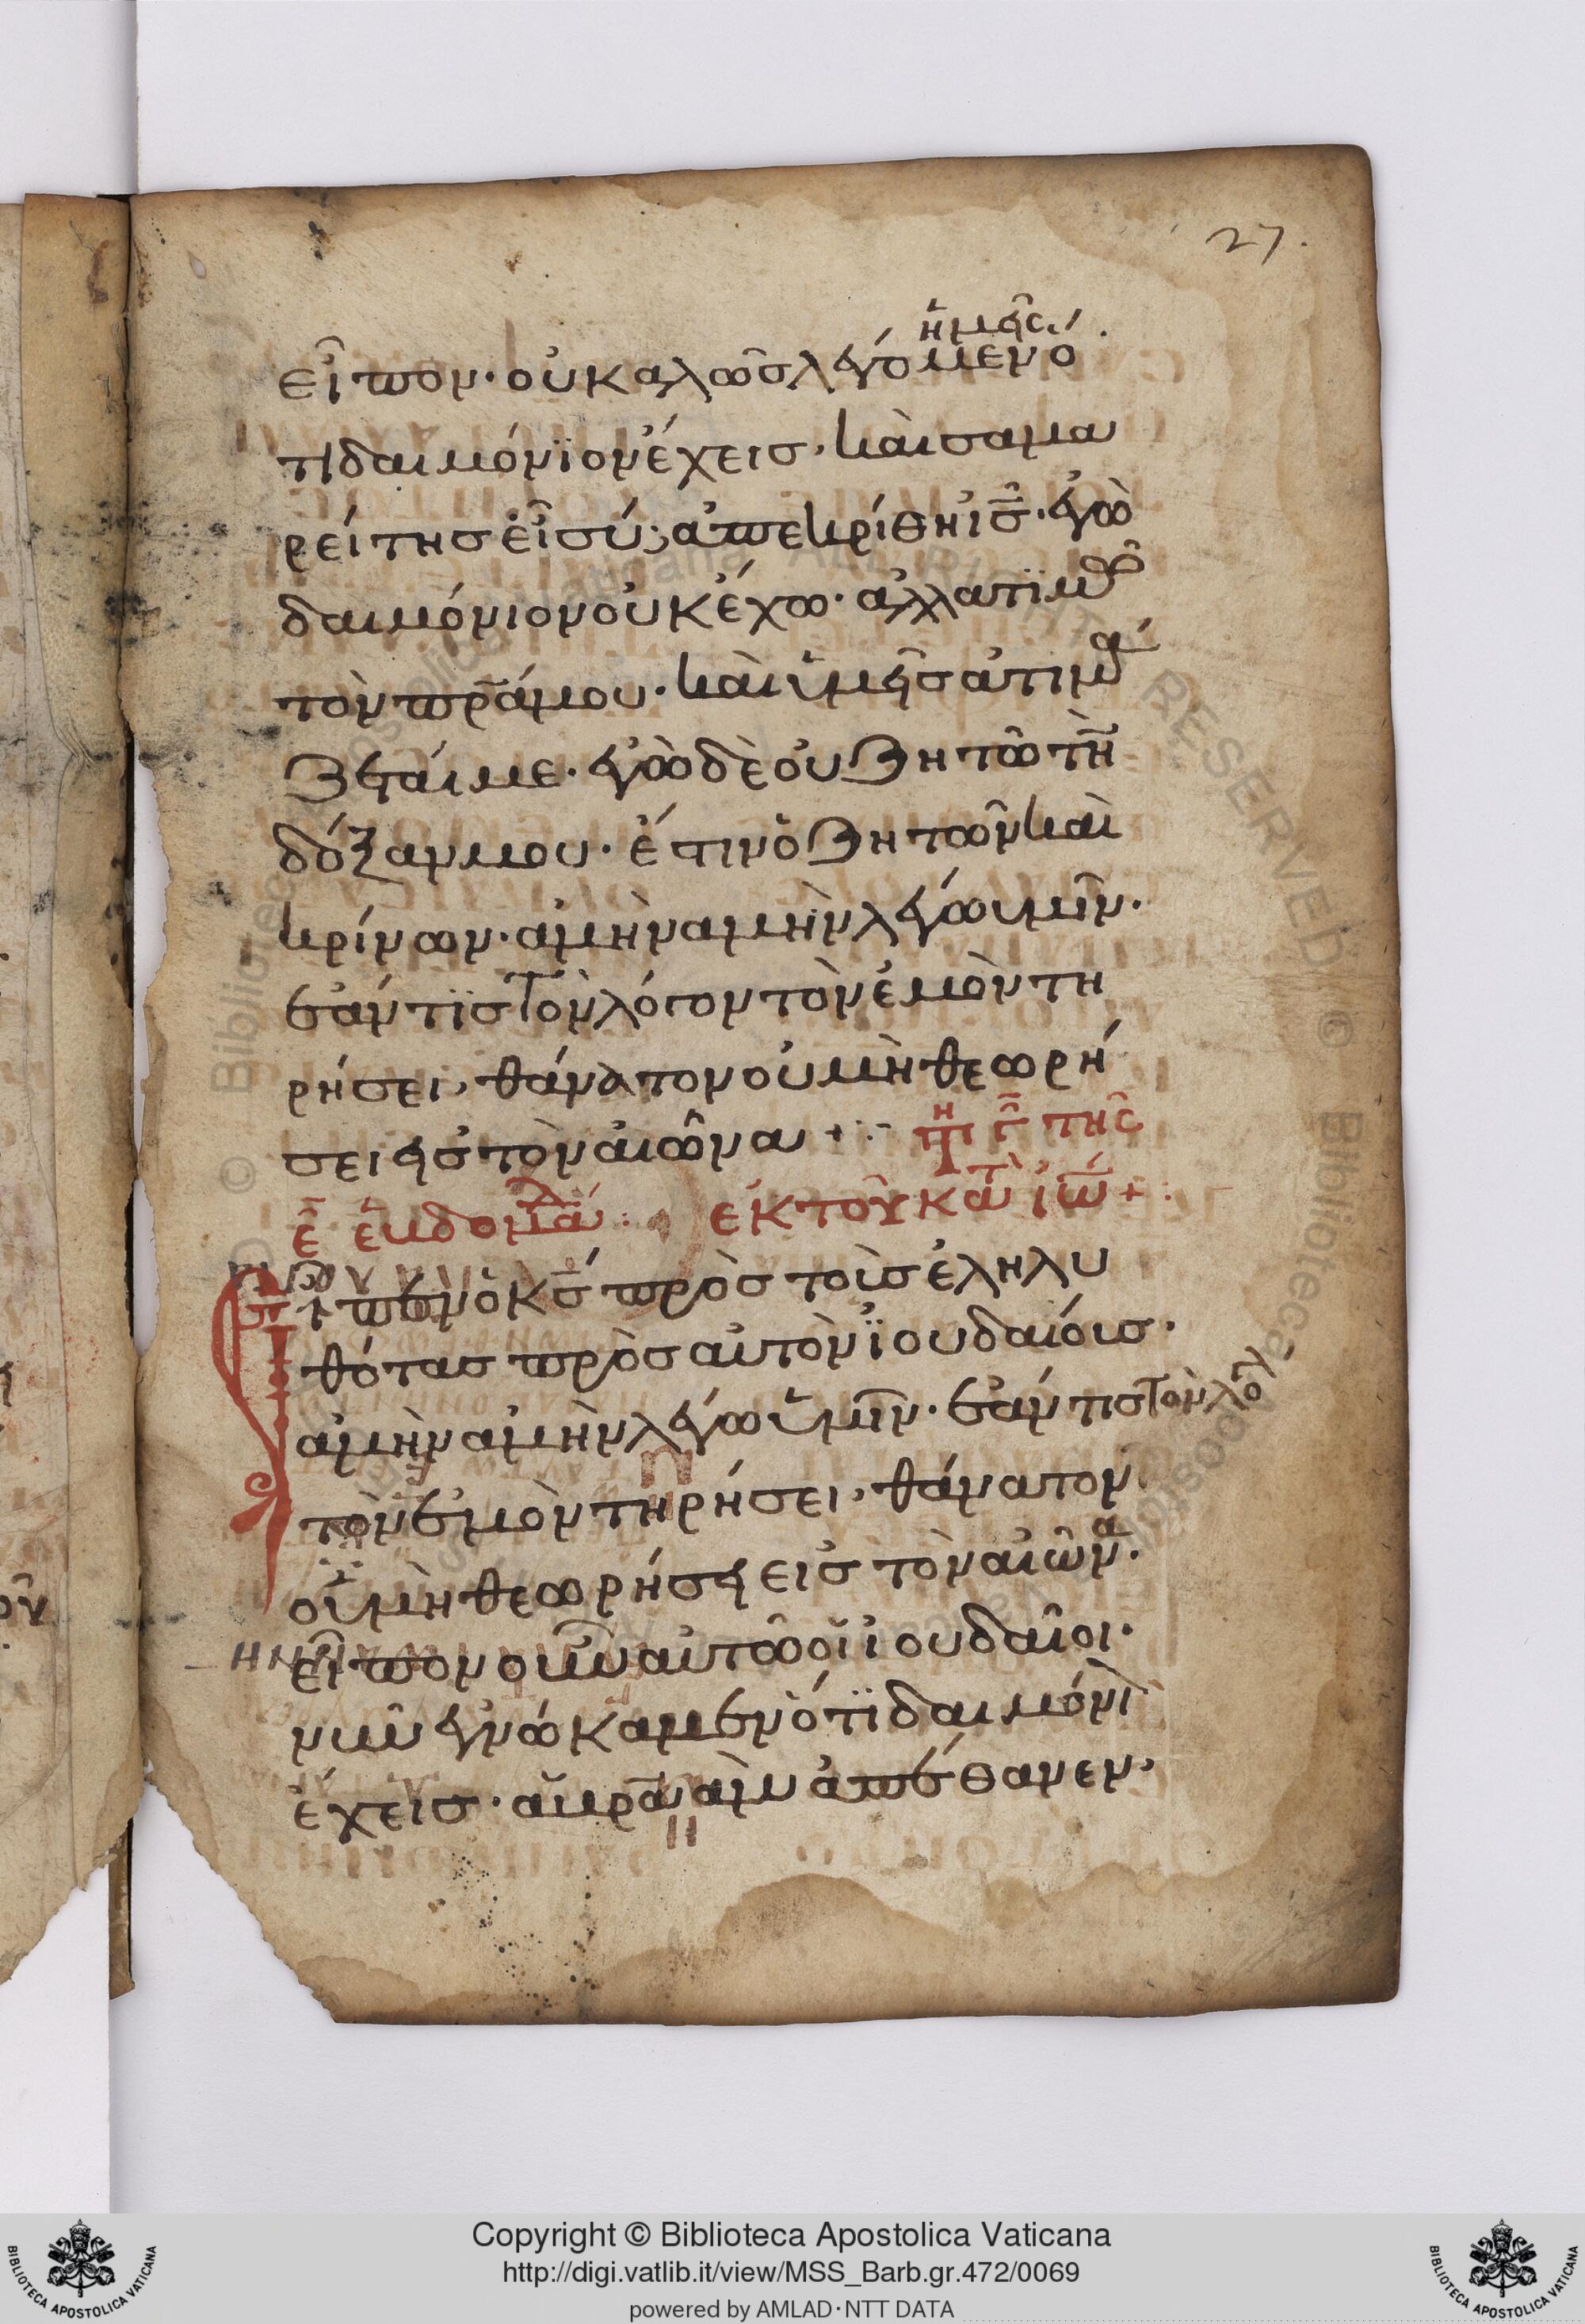 27.
ἡμεῖς
εἶπον· οὐ καλῶς λέγομεν ὅ
τι δαιμόνϊον ἔχεις, καὶ σαμα
ρείτης εἶ σύ; ἀπεκρίθη ὁ ις· ἐγὼ
δαιμόνιον οὐκ ἔχω· ἀλλα τϊμῶ
τὸν πρα μου· καὶ ὑμεῖς ἀτιμά
ζεται με· ἐγὼ δὲ οὐ ζητῶ τὴν
δόξαν μου· ἔστιν ὁ ζητῶν καὶ
κρίνων· ἀμὴν αμὴν λέγω υμῖν·
ἐάν τϊς τὸν λόγον τὸν ἐμὸν τη
ρήσει, θάνατον οὐ μὴ θεωρή
σει εἰς τὸν αἰῶνα +
τῇ ς τῆς
ε ἑβδομάδ· ἐκ τοῦ κατὰ ἰω +
Εἶπεν ὁ κς πρὸς τοὺς ἐληλυ
θότας πρὸς αὐτὸν ἰουδαίοις·
ἀμὴν αμὴν λέγω ὑμῖν· ἐάν τις τὸν λόγ
τὸν ἐμὸν τηρήσει, θάνατον
οὐ μὴ θεωρήσει εἰς τὸν αἰῶνα·
εἶπον οὖν αὐτῶ οἱ ἰουδαῖοι·
νῦν ἐγνώκαμεν ὅτϊ δαιμόνι
ἔχεις· ἀβραὰμ ἀπέθανεν,
Copyright © Biblioteca Apostolica Vaticana
http://digi.vatlib.it/view/MSS_Barb.gr.472/0069
powered by AMLAD·NTT DATA
BIBLIOTECA APOSTOLICA VATICANA
BIBLIOTECA APOSTOLICA VATICANA